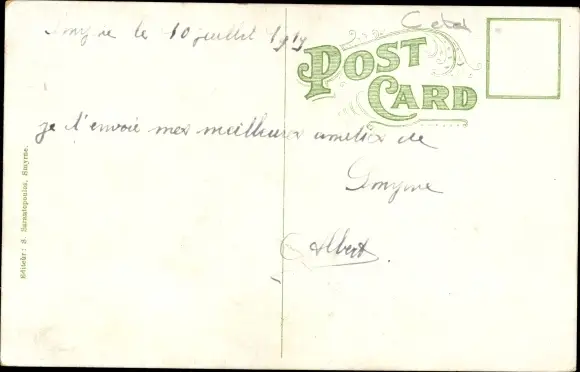 Smyrne le 10 juillet 1919
POST CARD
je t'envoie mes meilleurs amitiés de
Smyrne
Albert
Editeur: S. Sarantopoulos, Smyrne.